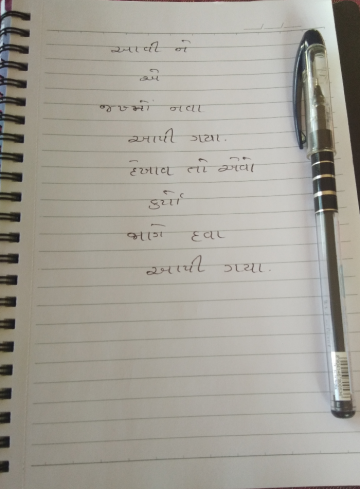 આવી ને
એ
જખ્મોં નવા
આપી ગયા.
દેખાવ તો એવો
કર્યો
જાણે દવા
આપી ગયા.